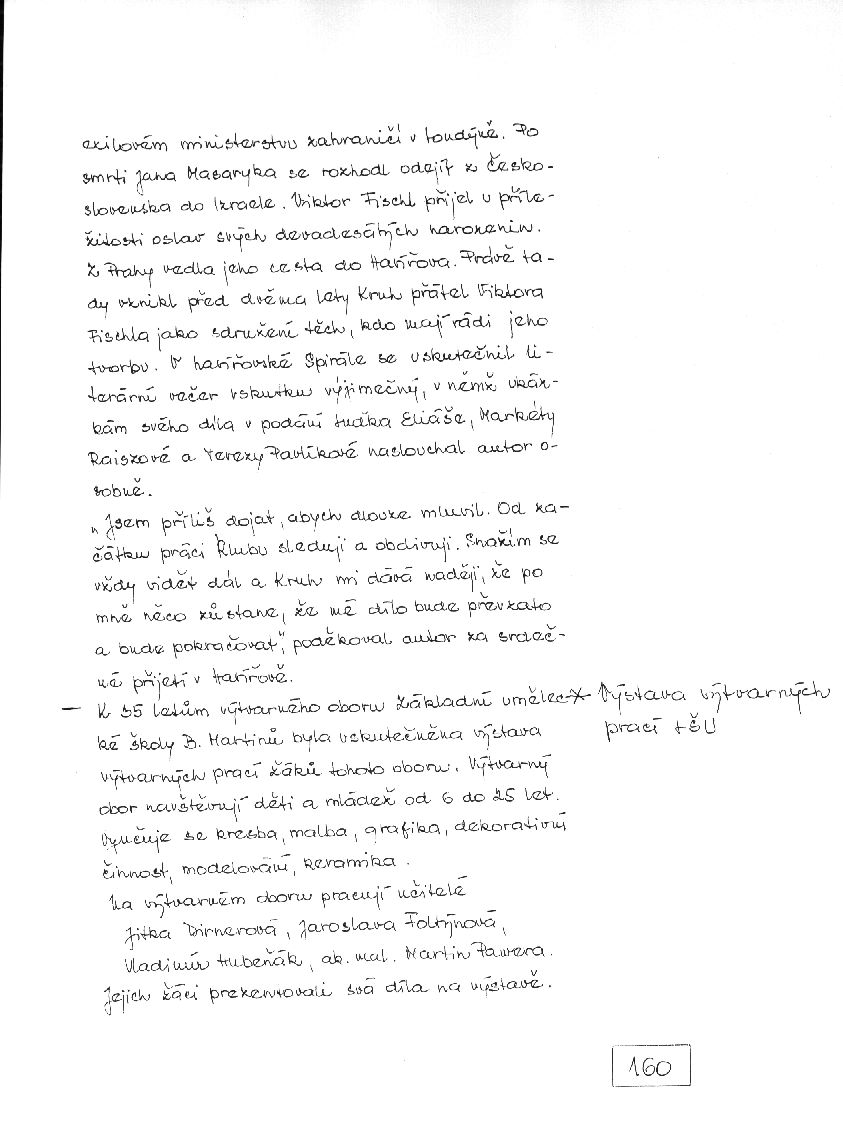 exilovém ministerstvu zahraničí v Londýně. Po
smrti Jana Masaryka se rozhodl odejít z Česko-
slovenska do Izraele. Viktor Fischl přijel u příle-
žitosti oslav svých devadesátých narozenin.
Z Prahy vedla jeho cesta do Havířova. Právě ta-
dy vznikl před dvěma lety Kruh přátel Viktora
Fischla jako sdružení těch, kdo mají rádi jeho
tvorbu. V havířovské Spirále se uskutečnil li-
terární večer vskutku výjimečný, v němž ukáz-
kám svého díla v podání Luďka Eliáše, Markéty
Raiszové a Terezy Pavlíkové naslouchal autor o-
sobně.
„Jsem příliš dojat, abych dlouze mluvil. Od za-
čátku práci Klubu sleduji a obdivuji. Snažím se
vždy vidět dál a Kruh mi dává naději, že po
mně něco zůstane, že mé dílo bude převzato
a bude pokračovat", poděkoval autor za srdeč-
né přijetí v Havířově.
— K 35 letům výtvarného oboru Základní umělec- Výstava výtvarných
ké školy B. Martinů byla uskutečněna výstava prací LŠU
výtvarných prací žáků tohoto oboru. Výtvarný
obor navštěvují děti a mládež od 6 do 25 let.
Vyučuje se kresba, malba, grafika, dekorativní
činnost, modelování, keramika.
Na výtvarném oboru pracují učitelé
Jitka Dirnerová, Jaroslava Foltýnová,
Vladimír Hubeňák, ak. mal. Martin Pawera.
Jejich žáci prezentovali svá díla na výstavě.
160